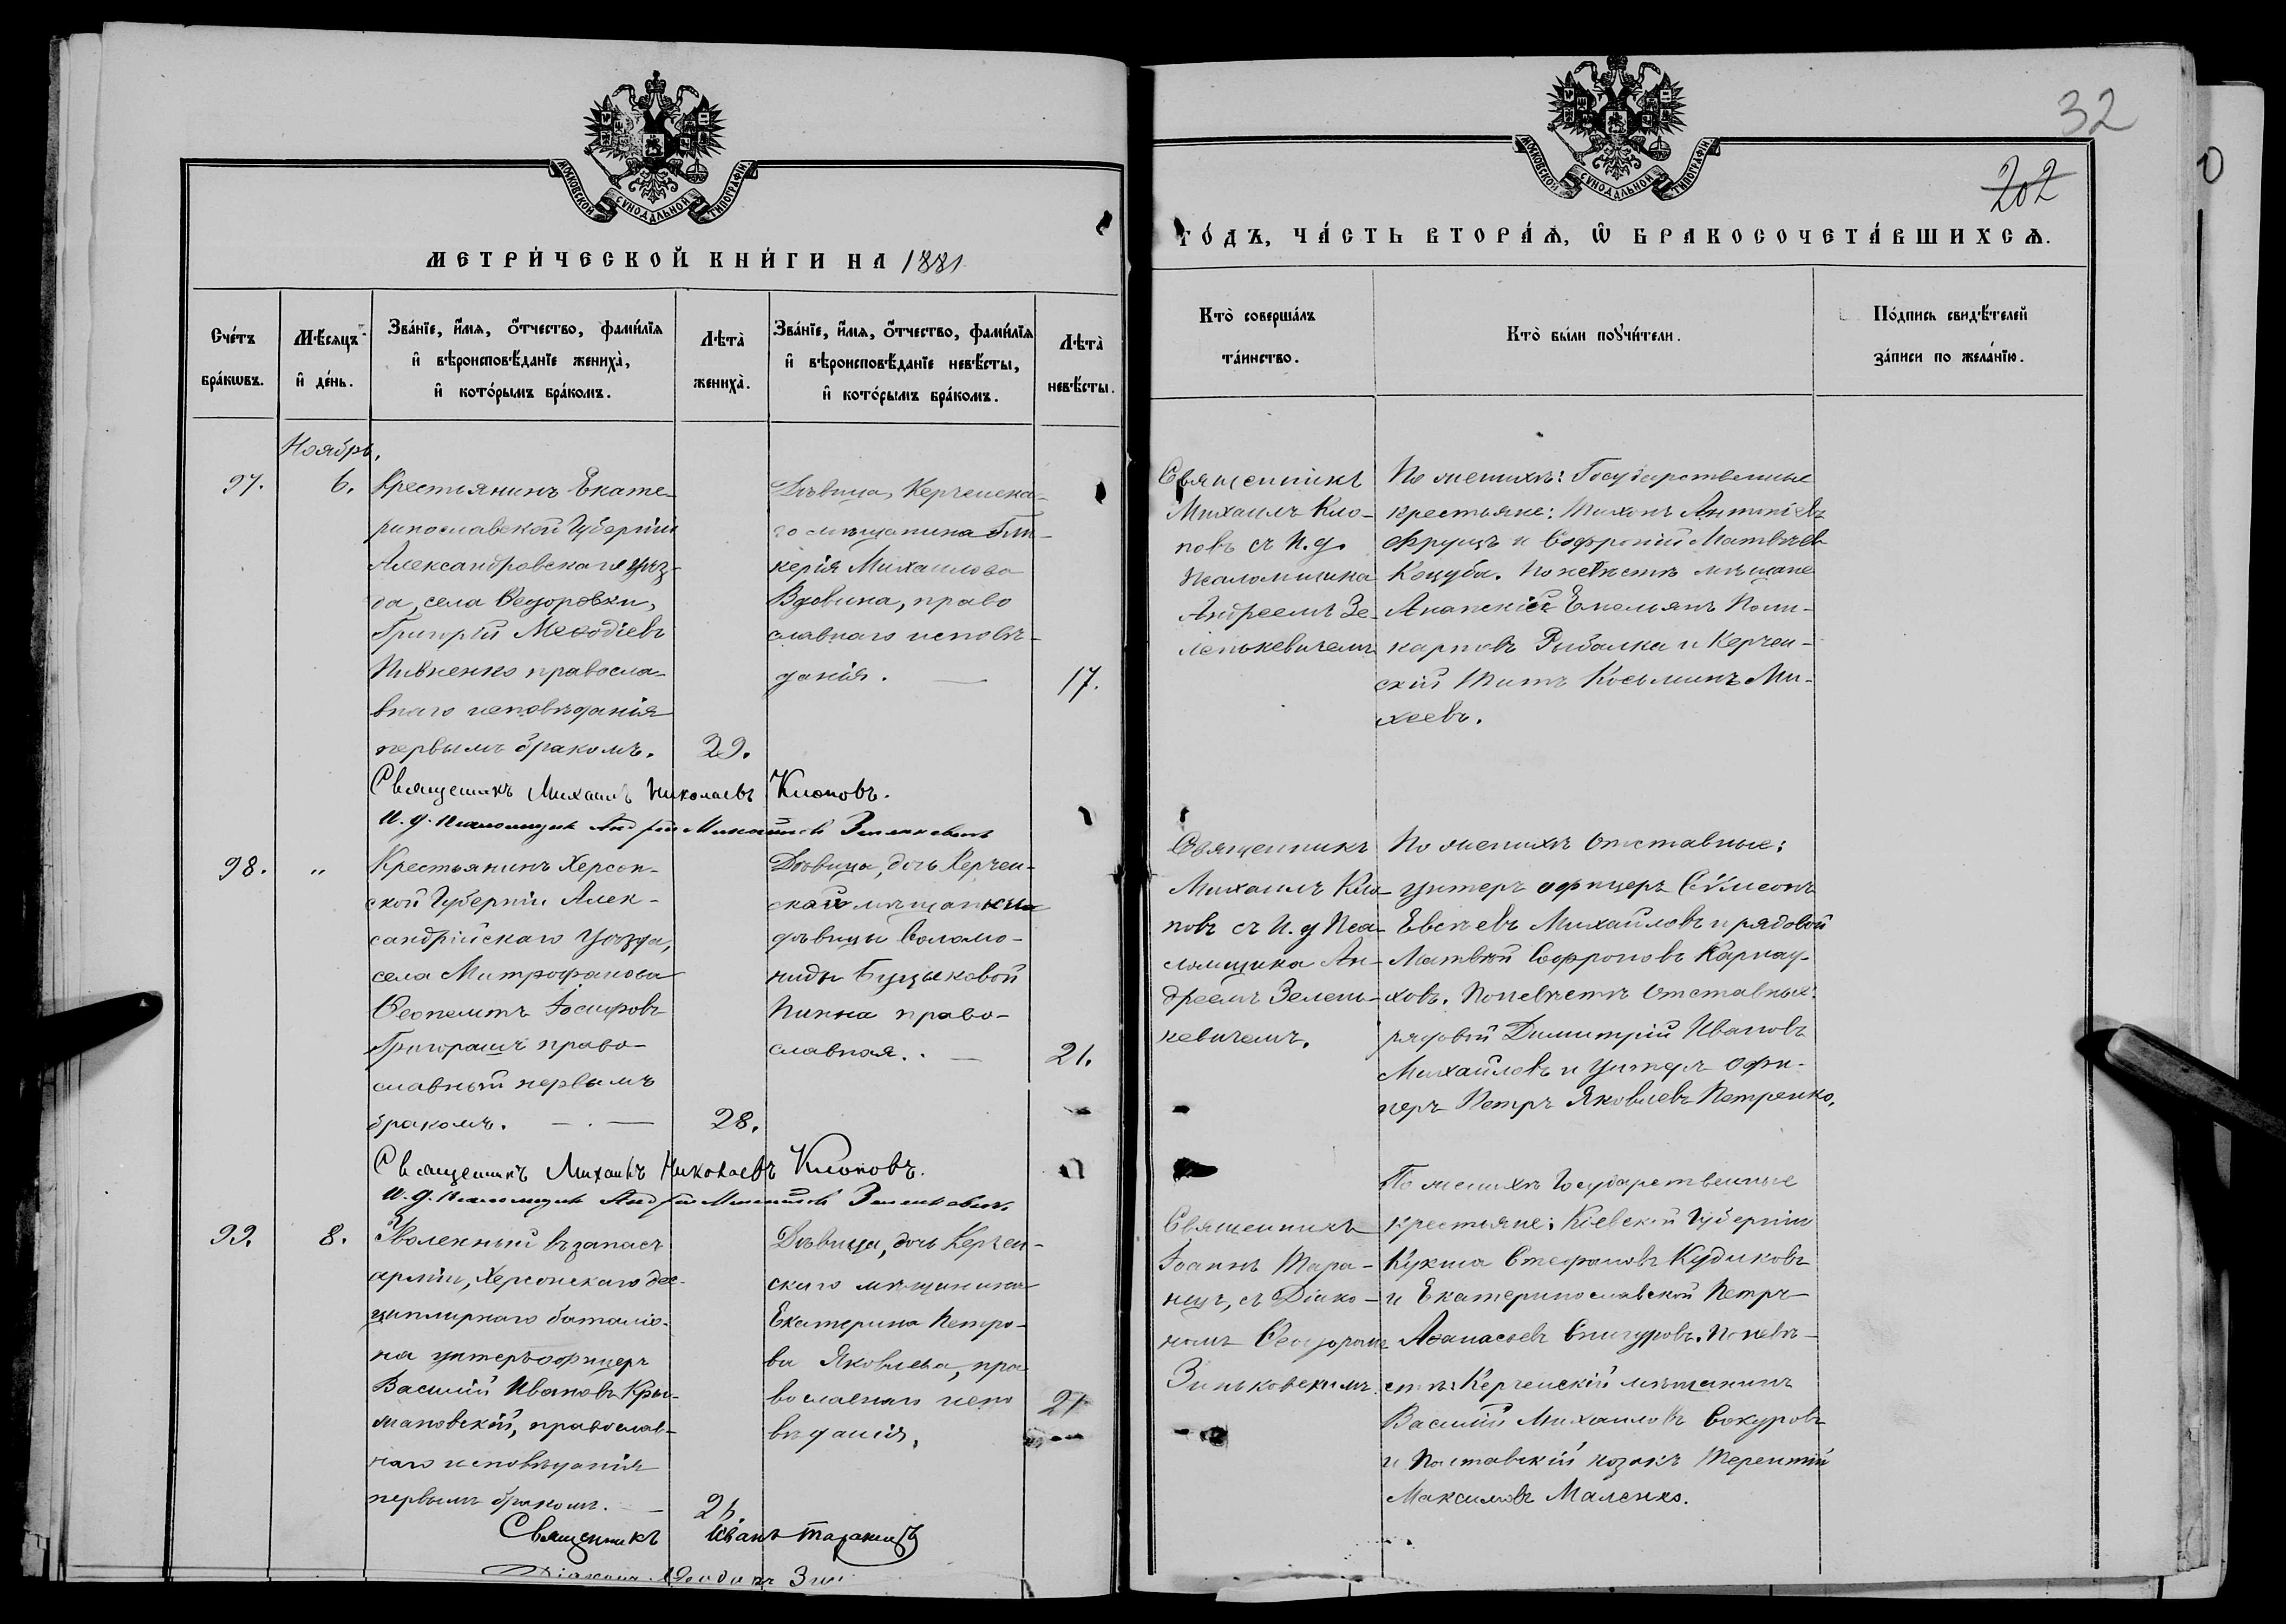 МОСКОВСКОЙ СѴНОДАЛЬНОЙ ТИПОГРАФІИ
МЕТРИ́ЧЕСКОЙ КНИ́ГИ НА 1881
Сче́тъ бра́кωвъ.
Мѣ́сяцъ и҆ де́нь.
Зва́нїе, и҆́мѧ, ѻ҆́тчество, фами́лїѧ
и҆ вѣроисповѣ́данїе жениха̀,
и҆ кото́рымъ бра́комъ.
Лѣта̀ жениха̀.
Зва́нїе, и҆́мѧ, ѻ҆́тчество, фами́лїѧ
и҆ вѣроисповѣ́данїе невѣ́сты,
и҆ кото́рымъ бра́комъ.
Лѣта̀ невѣ́сты.
Ноябрь.
97.
6.
Крестьянинъ Екате-
ринославской Губерніи
Александровскаго уѣз-
да, села Ѳедоровки,
Григорій Меѳодіевъ
Пивненко правосла-
внаго исповѣданія
первымъ бракомъ.
29.
Дѣвица, Керченска-
го мѣщанина Гли-
керія Михаилова
Вдовина, право
славнаго исповѣ-
данія.
17.
Священникъ Михаилъ Николаевъ Клоповъ.
И. д. Псаломщика Андрей Зелинкевичъ
98.
"
Крестьянинъ Херсон-
ской Губерніи Алек-
сандрійскаго Уѣзда,
села Митрофанова
Ѳеопемтъ Іосифовъ
Григорашъ право-
славный первымъ
бракомъ.
28.
Дѣвица, дочь Керчен-
ской мѣщанки
дѣвицы Соломо-
ниды Буцыковой
право-
славная.
21.
Священникъ Михаилъ Николаевъ Клоповъ.
И. д. Псаломщика Андрей Зелинкевичъ
99.
8.
Уволенный въ запасъ
арміи, Херсонскаго дис-
циплирнаго баталіо-
на унтеръ офицеръ
Василій Ивановъ Кры-
мановскій, православ-
наго исповѣданія
первымъ бракомъ.
Дѣвица, дочь Керчен-
скаго мѣщанина
Екатерина Петро-
ва Яковлева, пра
вославнаго испо
вѣданія,
Священникъ Іоанъ Таранецъ
Діаконъ Ѳеодоръ Зин
32
202
МОСКОВСКОЙ СѴНОДАЛЬНОЙ ТИПОГРАФІИ
ГО́ДЪ, ЧА́СТЬ ВТОРА́Ѧ, Ѽ БРАКОСОЧЕТА́ВШИХСѦ.
Кто̀ соверша́лъ та́инство.
Кто̀ бы́ли поꙋчи́тели.
По́дпись свидѣ́телей за́писи по жела́нїю.
Священникъ
Михаилъ Кло-
повъ съ И. д.
Псаломщика
Андреемъ Зе-
ленкевичемъ
По женихѣ: Государственные
крестьяне: Тихонъ Антоніевъ
Фрунцъ и Софроній Матвѣевъ
Коцуба. По невѣстѣ мѣщане
Анапскій Емельянъ Поли-
карповъ Рыбалка и Керчен-
скій Титъ Косьминъ Ми-
хеевъ.
Священникъ
Михаилъ Кло-
повъ съ И. д Пса-
ломщика Ан-
дреемъ Зелен-
кевичемъ.
По женихѣ Отставные:
унтеръ офицеръ Сѵмеонъ
Евсѣевъ Михайловъ и рядовой
Матвѣй Софроновъ Карнау-
ховъ. По невѣстѣ Отставные:
рядовой Димитрій Ивановъ
Михайловъ и Унтеръ Офи-
церъ Петръ Яковлевъ Петренко.
Священникъ
Іоаннъ Тара-
нецъ, съ Діако-
номъ Ѳеодоромъ
Зиньковскимъ.
По женихѣ Государственные
крестьяне: Кіевской Губерніи
Кукша Стефановъ Кудиковъ
и Екатеринославской Петръ
Аѳанасьевъ Снигуровъ. По невѣ-
стѣ: Керченскій мѣщанинъ
Василій Михаиловъ Сокуровъ
и Полтавскій козакъ Терентій
Максимовъ Маленко.